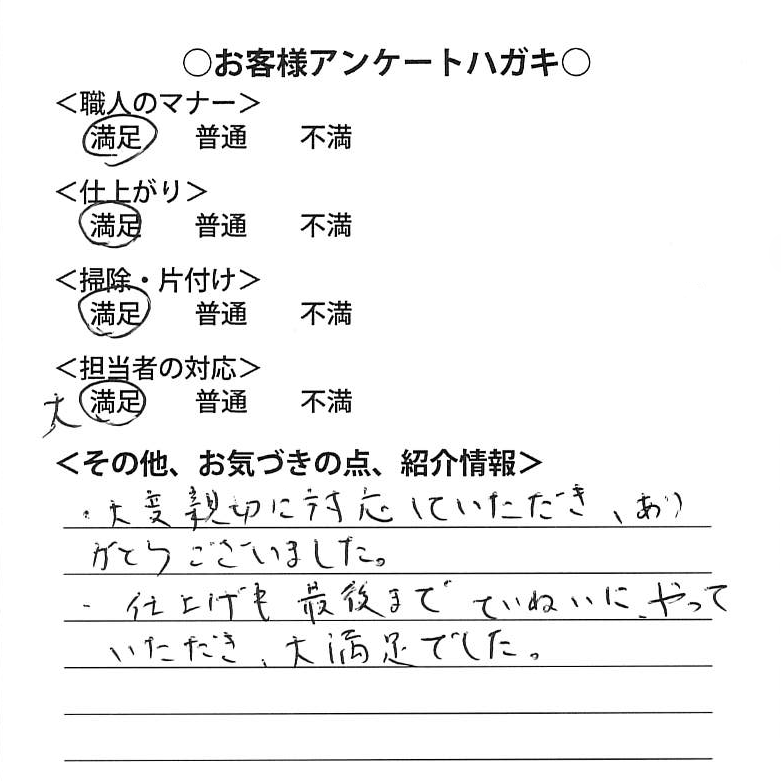 ○お客様アンケートハガキ○
＜職人のマナー＞
満足 普通 不満
＜仕上がり＞
満足 普通 不満
＜掃除・片付け＞
満足 普通 不満
＜担当者の対応＞
大 満足 普通 不満
＜その他、お気づきの点、紹介情報＞
・大変親切に対応していただき、あり
がとうございました。
・仕上げも最後までていねいに、やって
いただき、大満足でした。